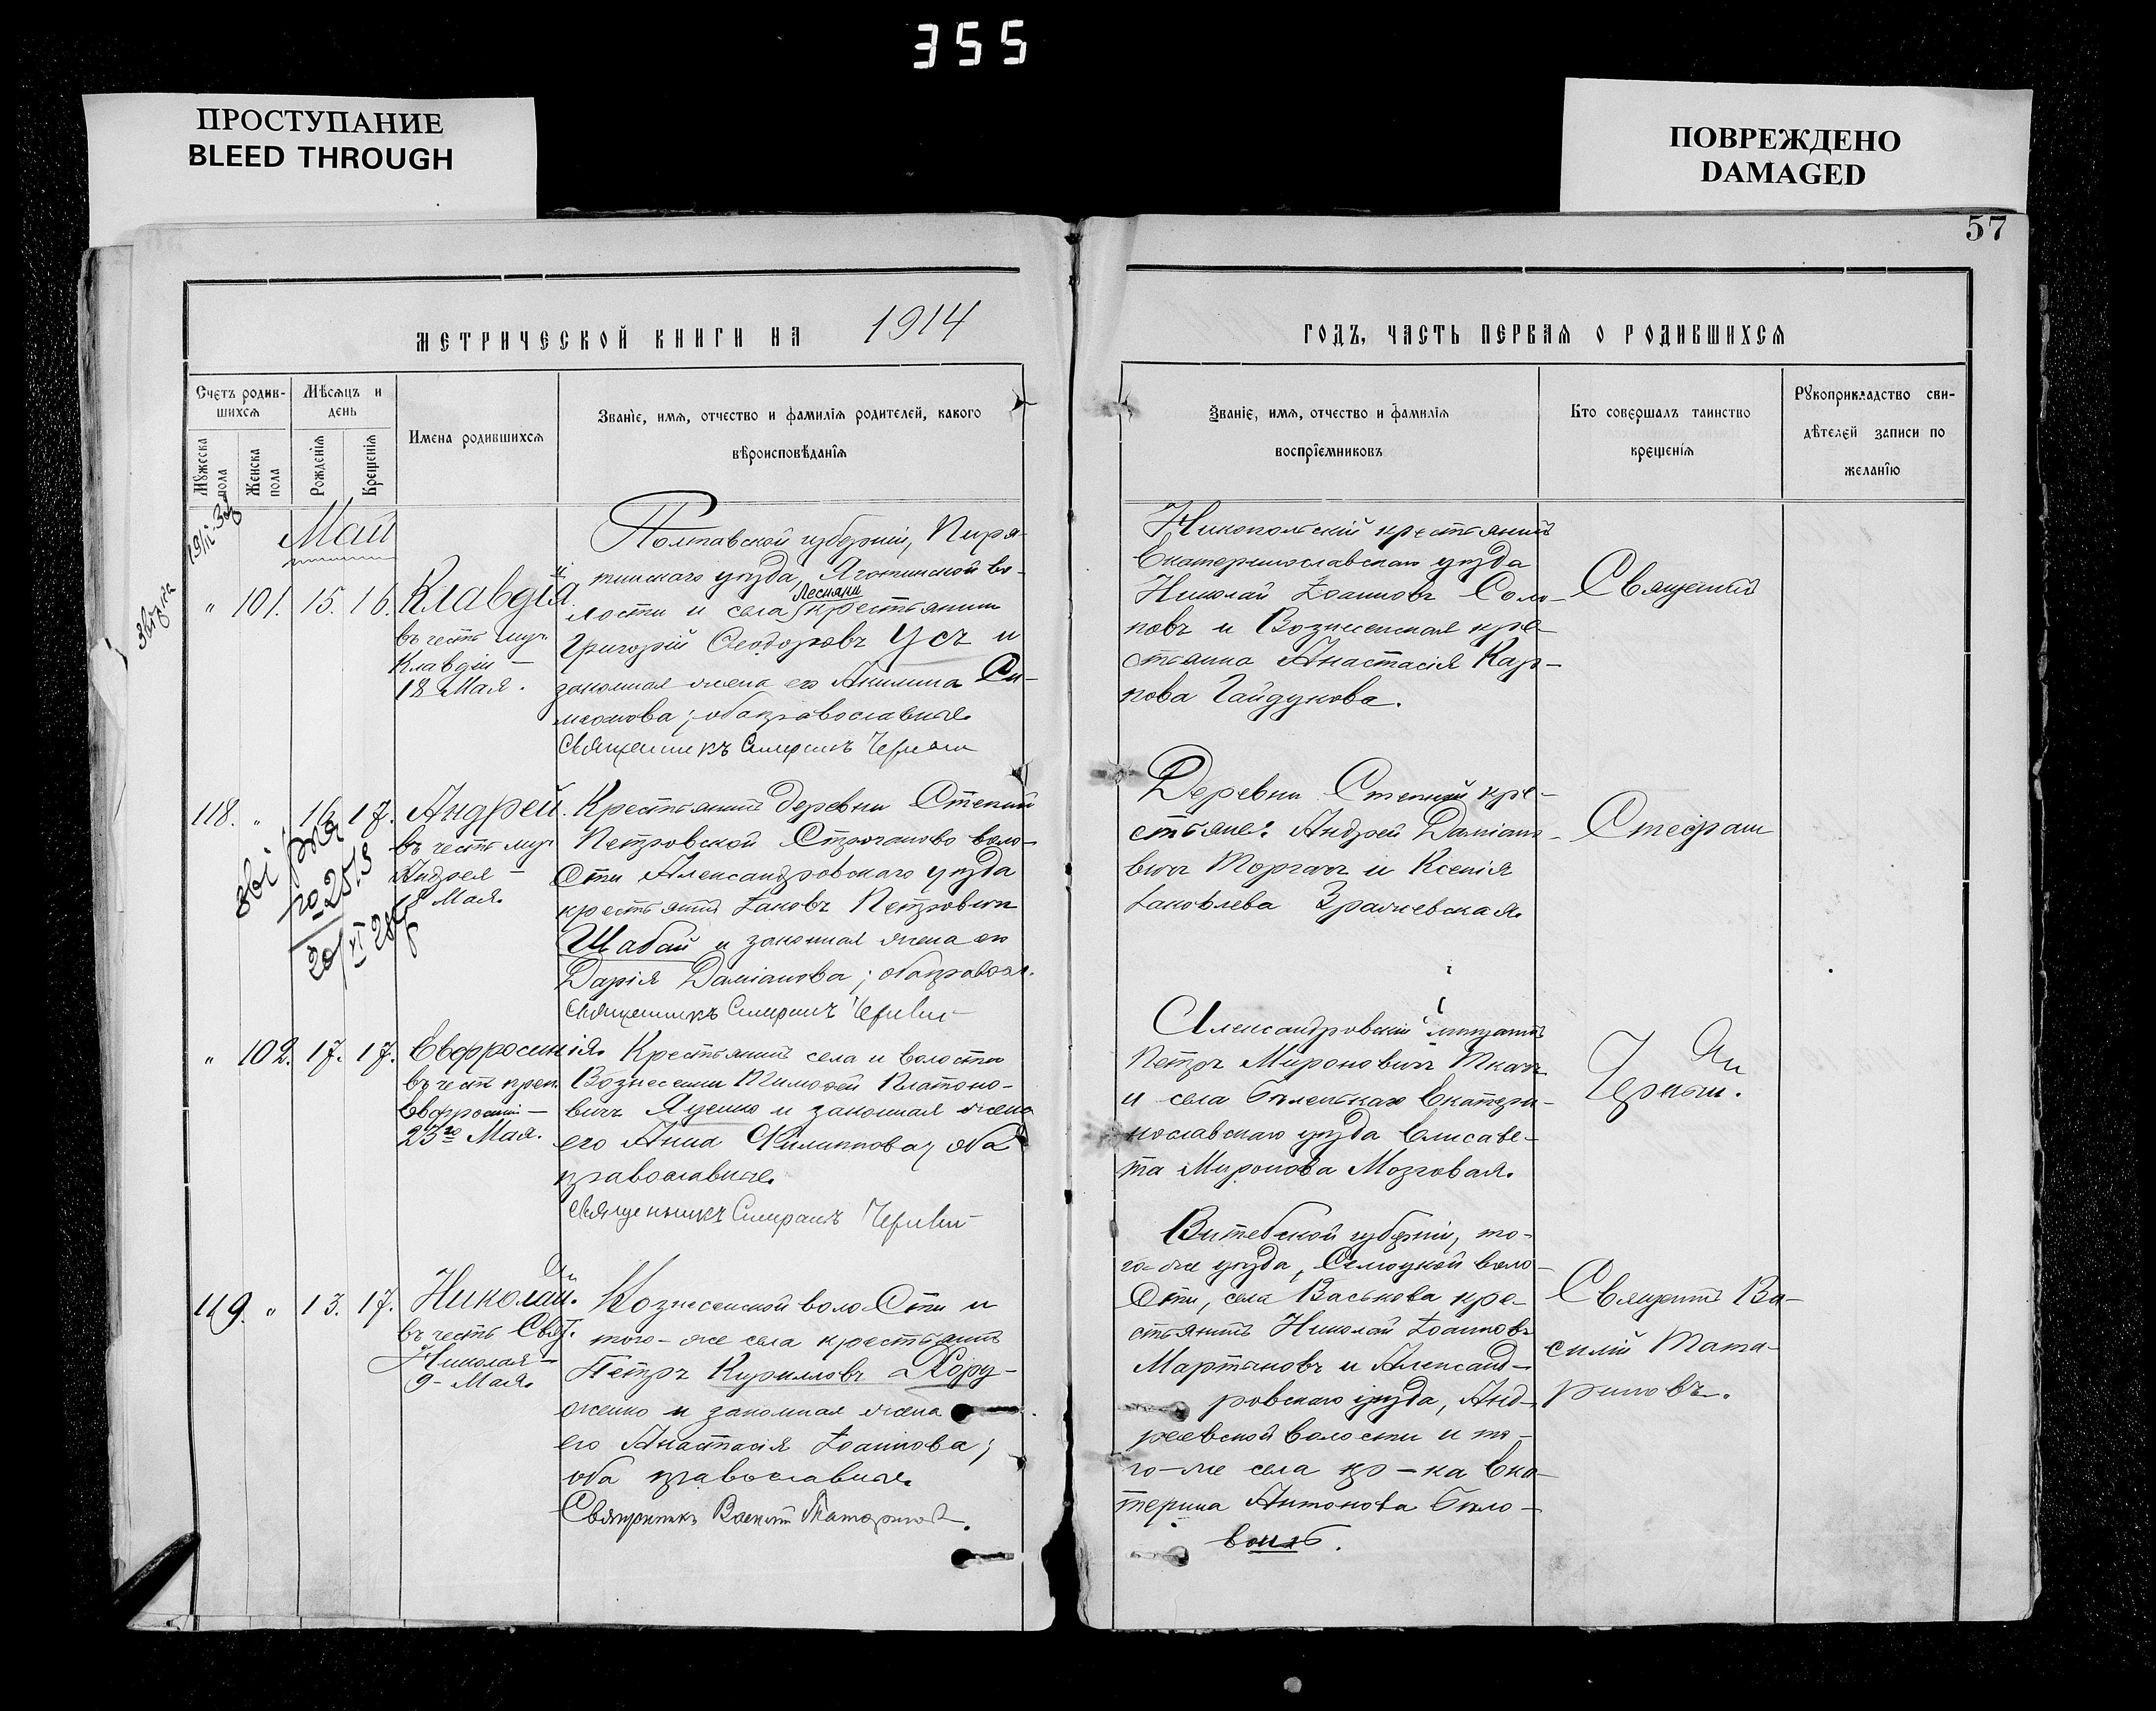 355
ПРОСТУПАНИЕ
BLEED THROUGH
ПОВРЕЖДЕНО
DAMAGED
57
МЕТРИЧЕСКОЙ КНИГИ НА 1914
ГОДЪ, ЧАСТЬ ПЕРВАЯ О РОДИВШИХСЯ
Счетъ родив-
шихся
Мѣсяцъ и
день
Имена родившихся
Званіе, имя, отчество и фамилія родителей, какого
вѣроисповѣданія
Мужеска
пола
Женска
пола
Рожденія
Крещенія
Званіе, имя, отчество и фамилія
воспріемниковъ
Кто совершалъ таинство
крещенія
Рукоприкладство сви-
дѣтелей записи по
желанію
Май
" 101. 15. 16. Клавдія
въ честь муч.
Клавдіи –
18 Мая.
Полтавской губерніи, Пиря-
тинскаго уѣзда, Яготинской во-
лости и села Лесняки крестьянинъ
Григорій Ѳеодоровъ Усъ и
законная жена его Акилина Си-
меонова; оба православные.
Священникъ Стефанъ
Никопольскій крестьянинъ
Екатеринославскаго уѣзда
Николай Іоанновъ Соло-
повъ и Вознесенская кре-
стьянка Анастасія Кар-
пова Гайдукова.
118. " 16. 17. Андрей.
въ честь муч.
Андрея –
18 Мая.
Крестьянинъ деревни Степной
Петровской Строганово воло-
сти Александровскаго уѣзда
крестьянинъ Іаковъ Петровичъ
Шабай и законная жена его
Дарія Даміанова; оба правосл.
Священникъ Стефанъ
Деревни Степной кре-
стьяне: Андрей Даміано-
вичъ Торгачъ и Ксенія
Іаковлева Зрачевская.
Стефан
" 102. 17. 17. Евфросинія.
въ честь преп.
Евфросиніи –
23го Мая.
Крестьянинъ села и волости
Вознесенки Тимофей Платоно-
вичъ Яценко и законная жена
его Анна Филиппова; оба
православные.
Священникъ Стефанъ
Александровскій мѣщанинъ
Петръ Мироновичъ Ткачъ
и села Бѣленькаго Екатери-
нославскаго уѣзда Елисаве-
та Миронова Мозговая.
119. " 13. 17. Николай.
въ честь Свят.
Николая –
9– Мая.
Вознесенской волости и
того-же села крестьянинъ
Петръ Кирилловъ Хору-
женко и законная жена
его Анастасія Іоаннова;
оба православные.
Священникъ Василій Татариновъ.
Витебской губерніи, то-
го-же уѣзда, волo-
сти, села Васькова кре-
стьянинъ Николай Іоанновъ
Мартыновъ и Александ-
ровскаго уѣзда, Анд-
реевской волости и то-
го-же села кр-ка Ека-
терина Антонова Бѣло-
Василій Тата-
риновъ.